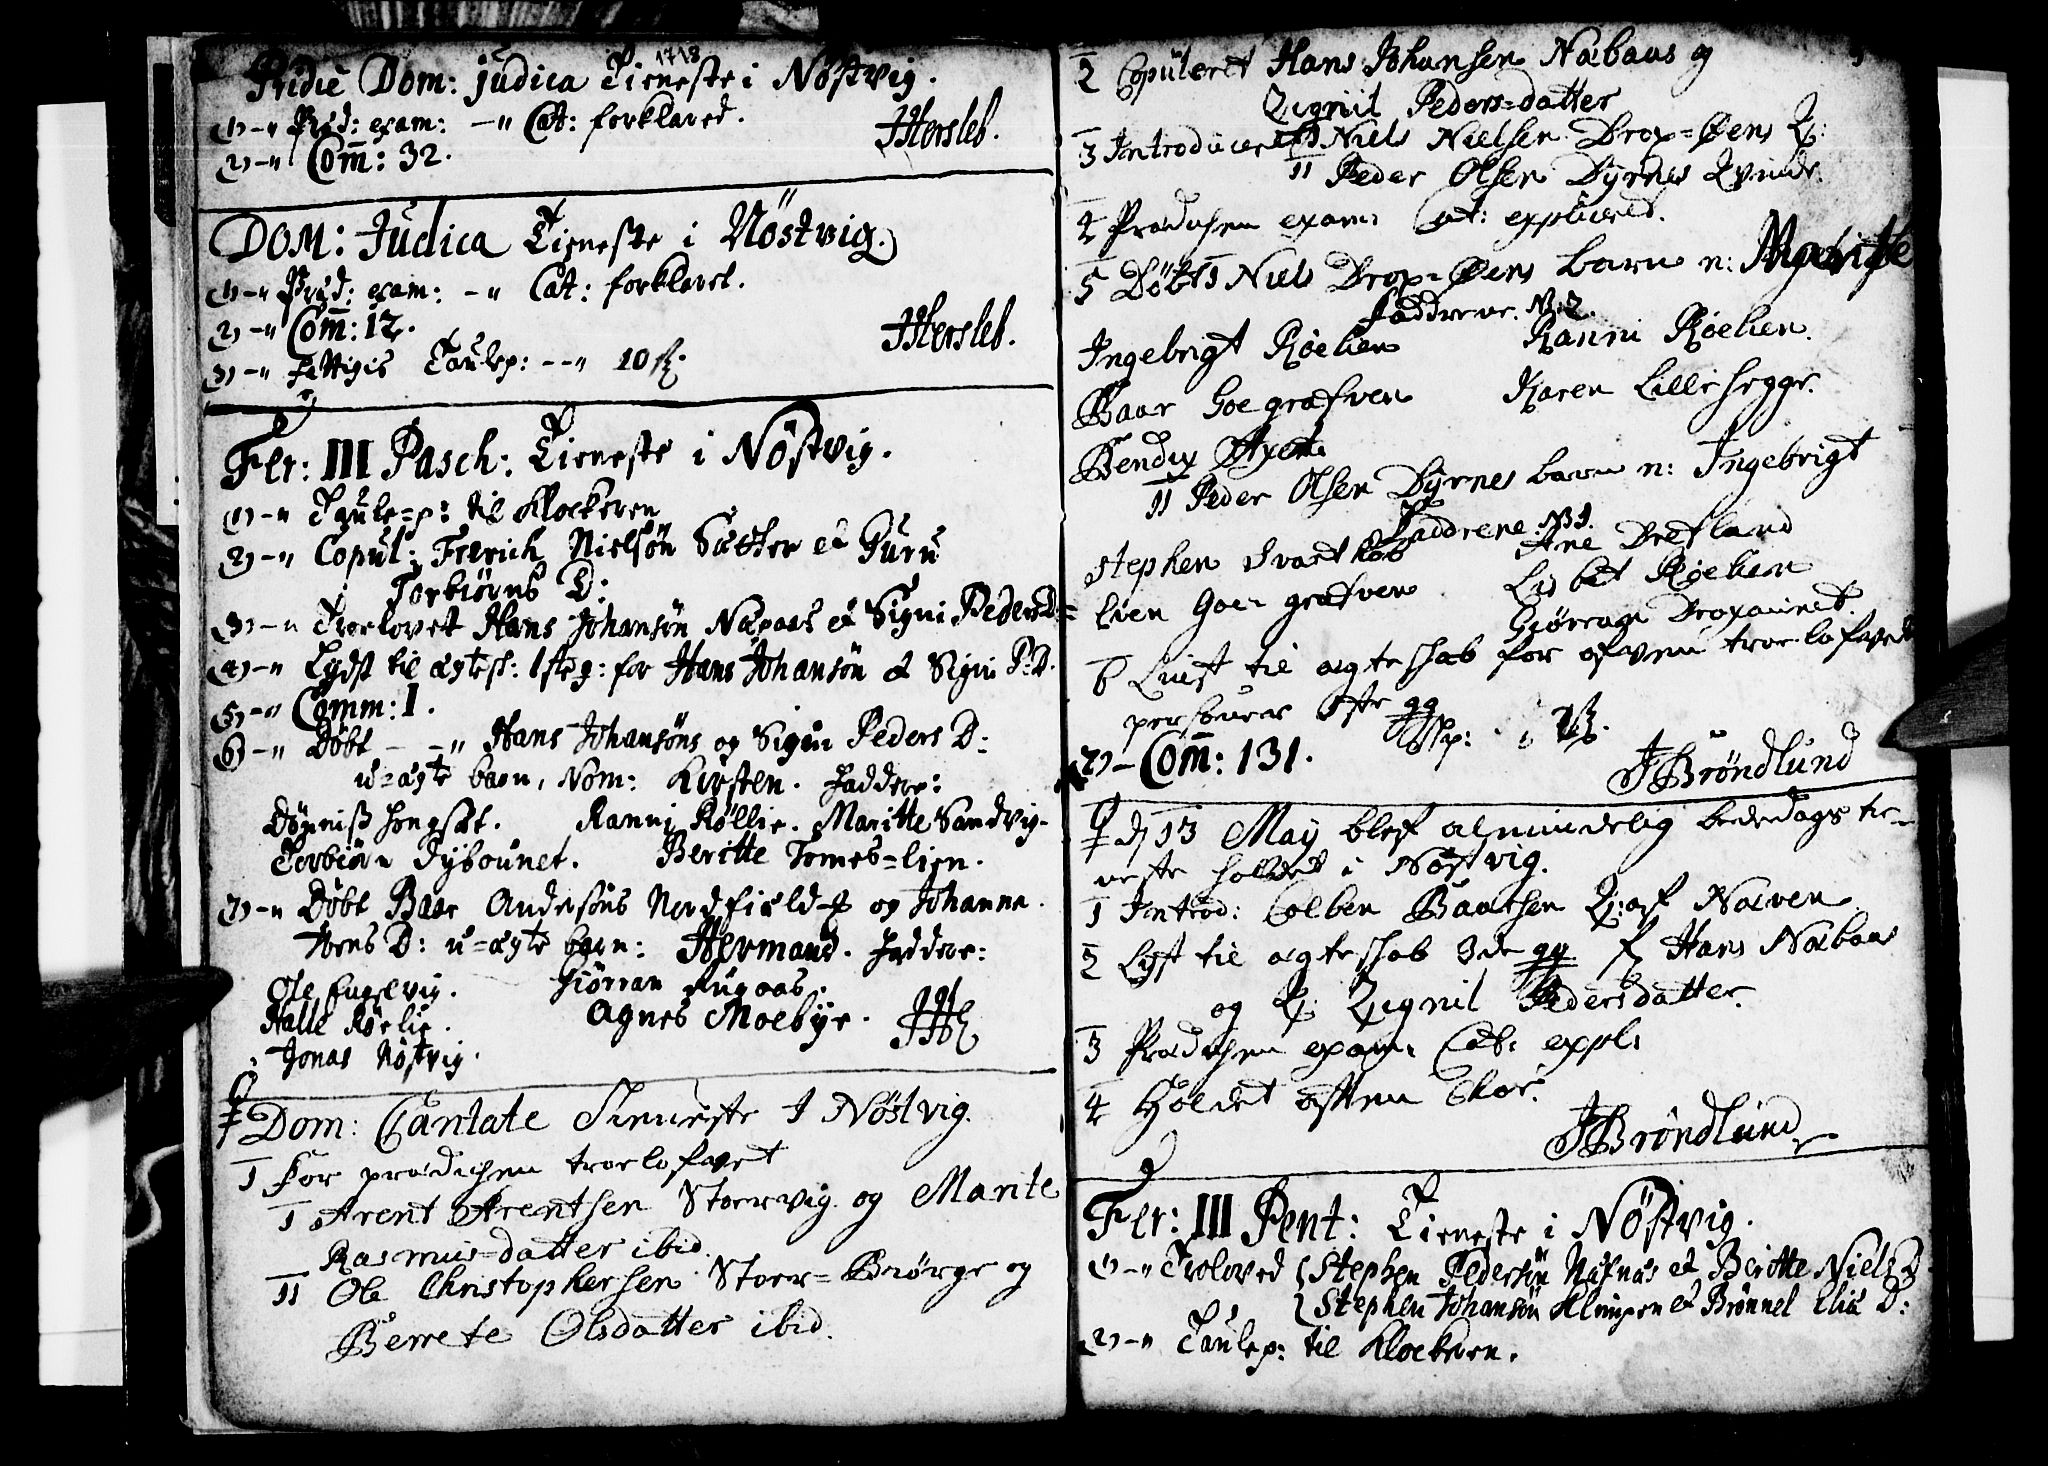 1718
Pridie Dom: judica Tieneste i Nöstvig.
1) -" Præd: exam: -" Cat: forklared.
2) -" Com̄: 32.
JHersleb.
DOM: Judica Tieneste i Nöstvig.
1) -" Præd: exam: -" Cat: forklaret.
2) -" Com̄: 12.
JHersleb.
3) -" Fattigis Taulep: --" 10 sk.
Fer: III Pasch: Tieneste i Nöstvig.
1) -" Taule=p: til Klockeren
2) -" Copul: Frerich Nielsön Sætter et Guru
Torbiörns D:
3) -" Trolovet Hans Johansön Næpaas et Signi Peders D=
4) -" Lydst til ægtesk: 1ste g: for Hans Johansön et Signi P: D.
5) -" Comm: 1.
6) -" Döbt - -" Hans Johansöns og Signi Peders D:
u=ægte barn, Nom: Kirsten. Faddere:
Dönniss Hongset. Ranni Röllie. Maritte Sandvig.
Torbiörn Dybounet. Beritte Tomes=lien.
7) -" Döbt Baar Andersöns Nordfield og Johanna
Ivers D: u=ægte barn: Hermand. Faddere:
Ole Engelvig. Giörran Rugaas.
Halle Rörlie. Agnes Moebye.
Jonas Nöstvig.
JHL
Dom: Cantate Tieneste I Nøstvig.
1 For prædichen troelofvet
1 Arent Arentsen Stoervig og Marite
Rasmus=datter ibid.
11 Ole Christophersen Stoer=Biørge og
Berrete Olsdatter ibid.
2 Copuleret Hans Johansen Næbaas og
Zignil Peders=datter
3 Introduceret 1 Niels Nielsen Drop=Øens Q:
11 Peder Olsen Dyrnes Qvinde.
4 Prædichen exam: Cat: expliceret.
5 Døbt 1 Niels Drop=Øens barn n: Marite
Faddrene. No 2.
Ingebrigt Røelien Ranni Røelien.
Baar Goegrafven Karen Lillehegge.
Bendix Axen
11 Peder Olsen Dyrnes barn n: Ingebrigt
Faddrene: No 1.
Stephen Svarthob Ane Dretland
Lien Goe grafven Lisbet Røelien
Giørran Dropaunet.
6 Liust til ægteskab for ofven troelofvede
personer 1ste gg
7) - Com̄: 131.
JBröndlund
d 13 May blef almindelig bededags tie=
neste holdet i Nøstvig.
1 Introd: Colben Baarsen Q: af Norven
2 Lyst til ægteskab 3de gg f Hans Næbaas
og Q: Zignil Pedersdatter.
3 Prædichen exam: Cat: expl:
4 Holdet aften Chor.
JBröndlund
Fer: III Pent: Tieneste i Nöstvig.
1) -" Troloved { Stephen Pedersön Næsnæs et Beritte Niels D
{ Stephen Johansön Klingen et Brönnel Elia D:
2) -" Taulep: til Klockeren.